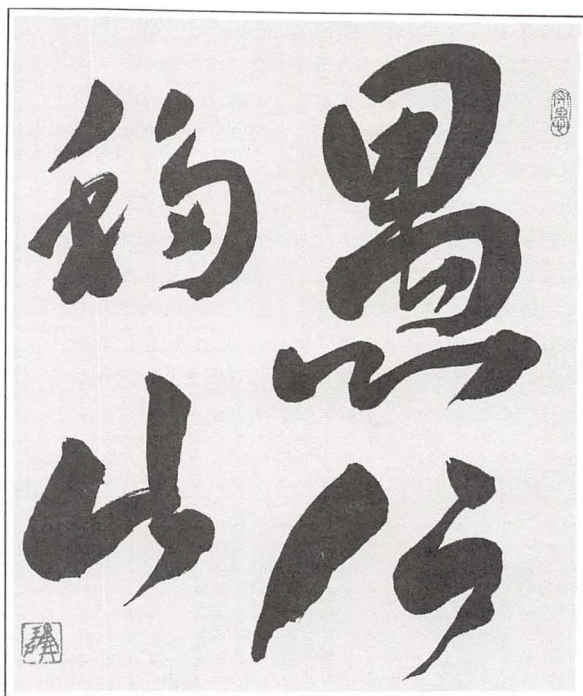 愚公
移山